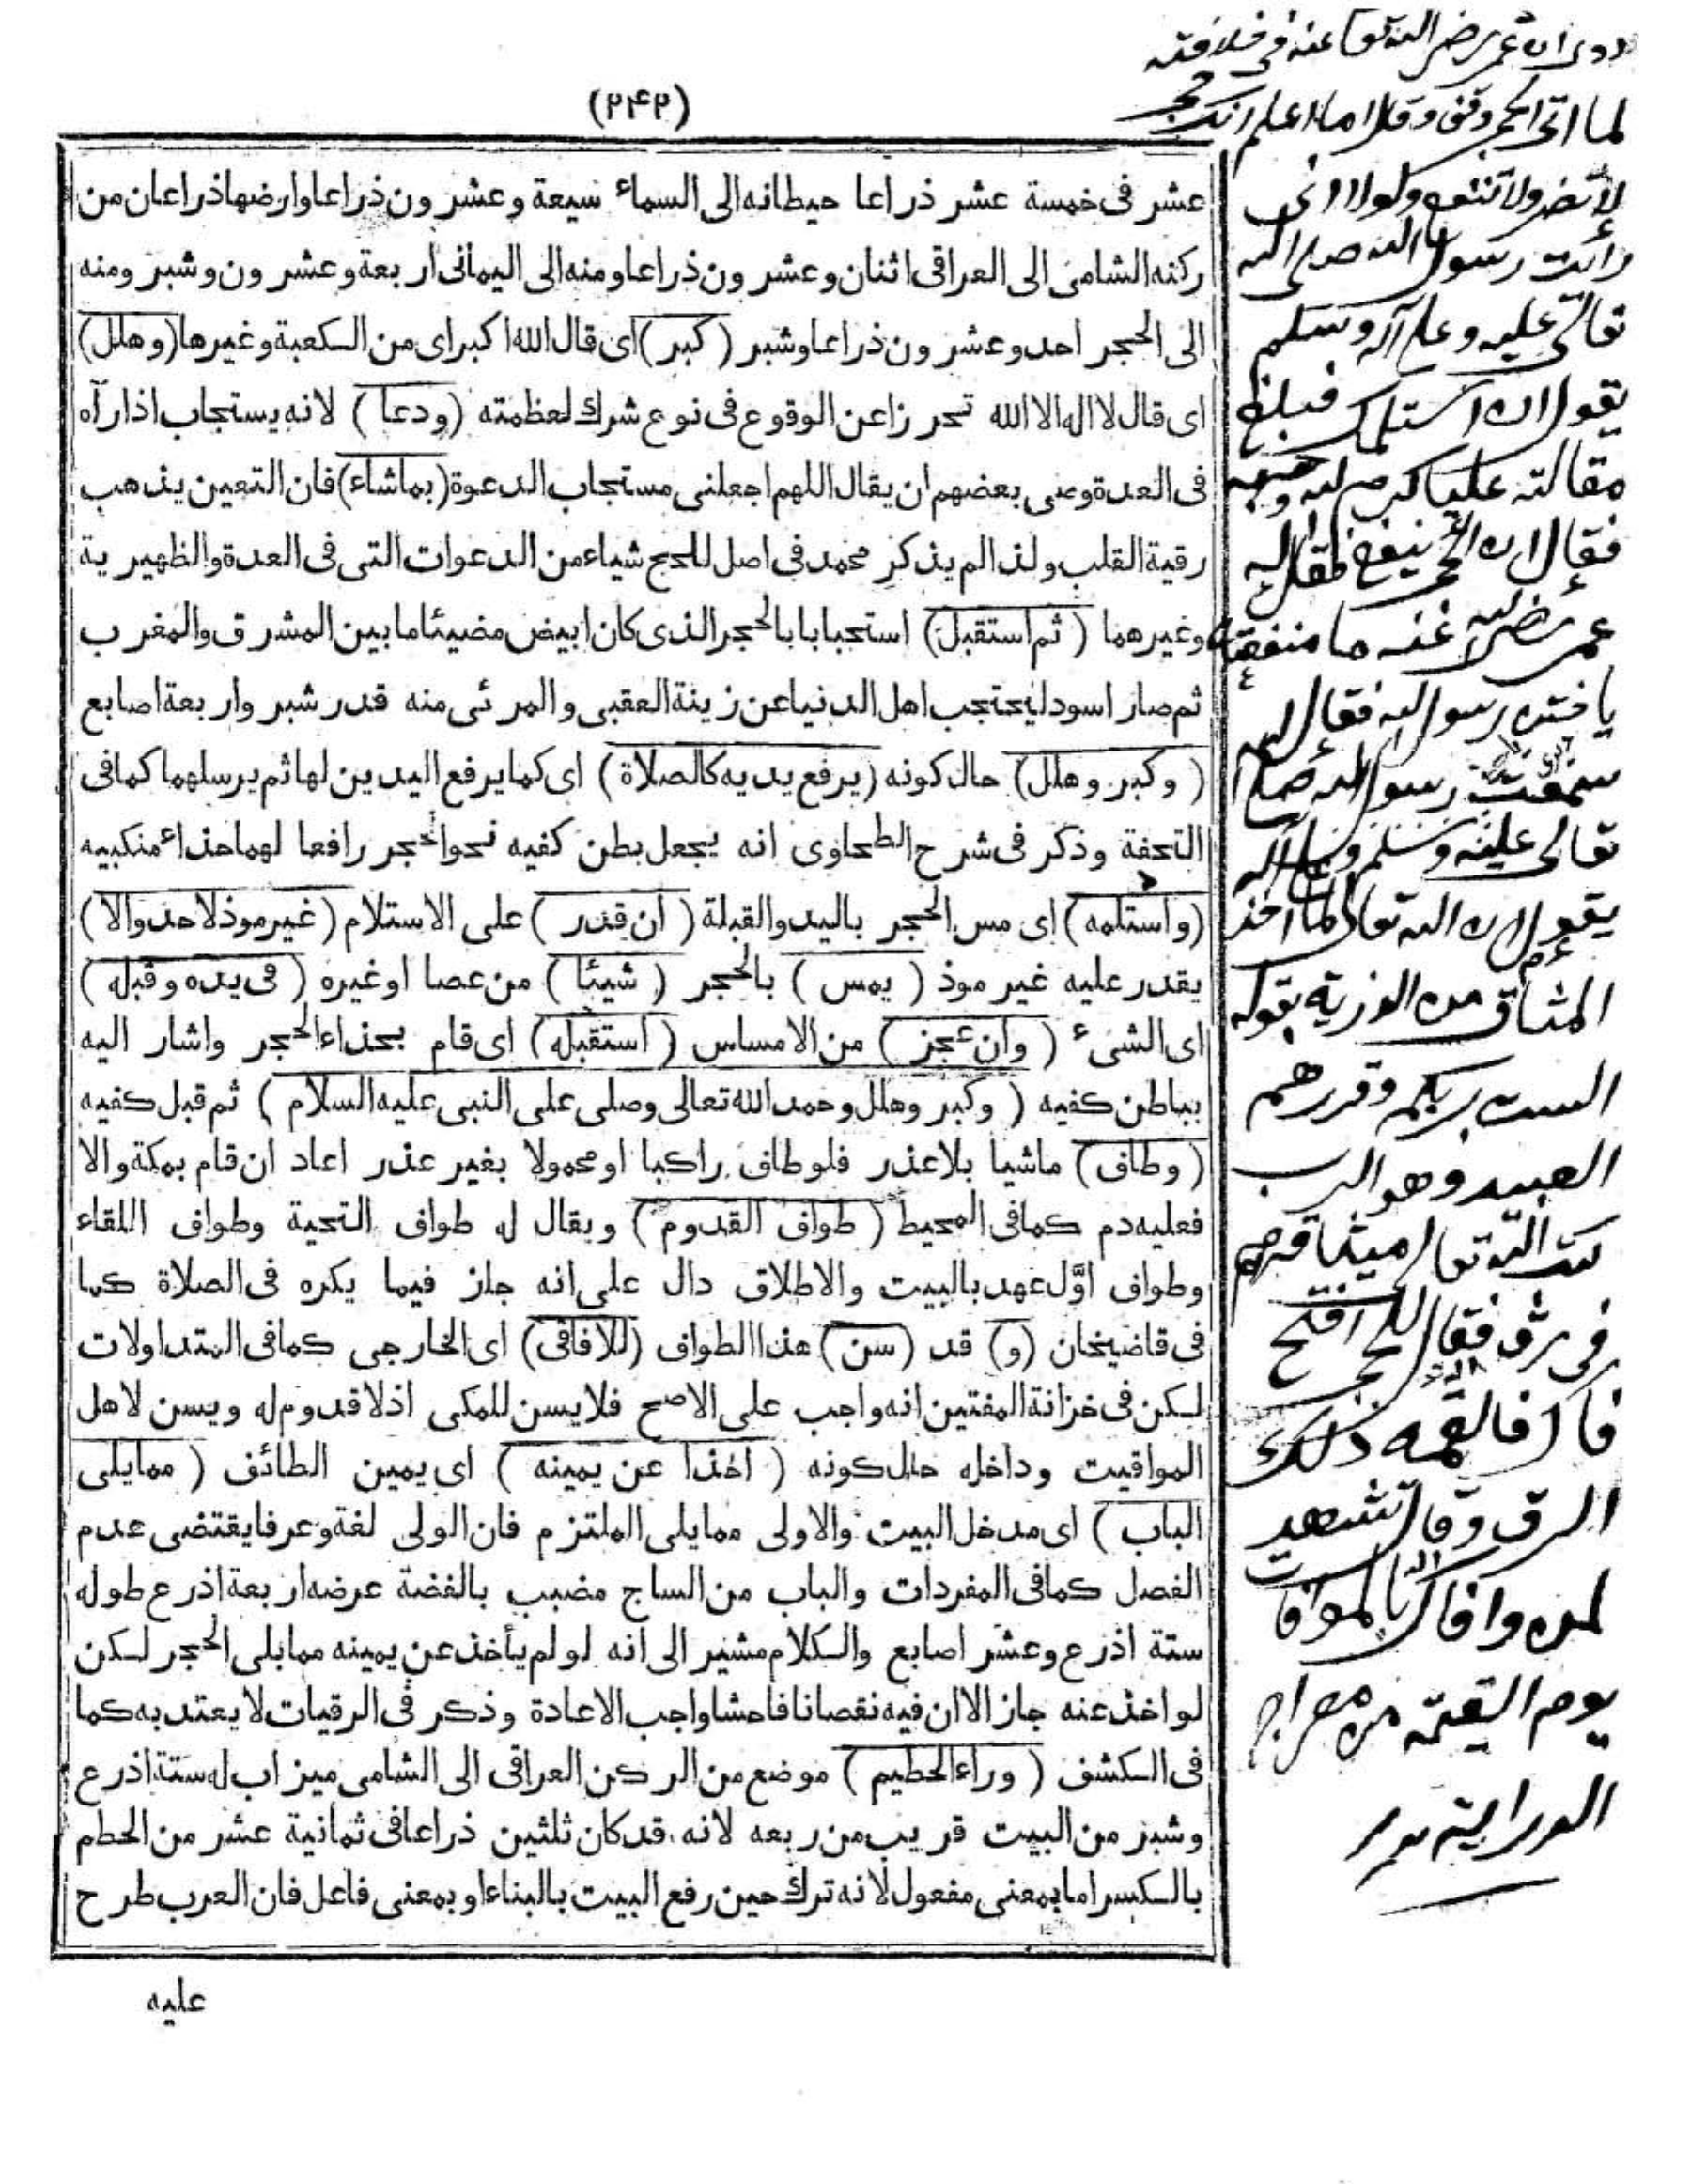 (٢٤٢)
عشر فى خمسة عشر ذراعا حيطانه الى السماء سبعة وعشرون ذراعا وارضها ذراعان من
ركنه الشامى الى العراقى اثنان وعشرون ذراعا ومنه الى اليمانى اربعة وعشرون وشبر ومنه
الى الحجر احد وعشرون ذراعا وشبر (كبر) اى قال الله اكبر اى من الكعبة وغيرها (وهلل)
اى قال لا اله الا الله تحرزا عن الوقوع فى نوع شرك لعظمته (ودعا) لانه يستجاب اذا رآه
فى العدة وصى بعضهم ان يقال اللهم اجعلنى مستجاب الدعوة (بما شاء) فان التعين يذهب
رقية القلب ولذا لم يذكر محمد فى اصل للحج شياء من الدعوات التى فى العدة والظهيرية
وغيرهما (ثم استقبل) استحبابا بالحجر الذى كان ابيض مضيئا ما بين المشرق والمغرب
ثم صار اسود ليحتجب اهل الدنيا عن زينة العقبى والمرئى منه قدر شبر واربعة اصابع
(وكبر وهلل) حال كونه (يرفع يديه كالصلاة) اى كما يرفع اليدين لها ثم يرسلهما كما فى
التحفة وذكر فى شرح الطحاوى انه يجعل بطن كفيه نحو الحجر رافعا لهما حذاء منكبيه
(واستلمه) اى مس الحجر باليد والقبلة (ان قدر) على الاستلام (غير موذ لاحد والا)
يقدر عليه غير موذ (يمس) بالحجر (شيئا) من عصا او غيره (فى يده وقبله)
اى الشىء (وان عجز) من الامساس (استقبله) اى قام بحذاء الحجر واشار اليه
بباطن كفيه (وكبر وهلل وحمد الله تعالى وصلى على النبى عليه السلام) ثم قبل كفيه
(وطاف) ماشيا بلا عذر فلو طاف راكبا او محمولا بغير عذر اعاد ان قام بمكة والا
فعليه دم كما فى المحيط (طواف القدوم) ويقال له طواف التحية وطواف اللقاء
وطواف اوّل عهد بالبيت والاطلاق دال على انه جاز فيما يكره فى الصلاة كما
فى قاضيخان (و) قد (سن) هذا الطواف (للآفاقى) اى الخارجى كما فى المتداولات
لكن فى خزانة المفتين انه واجب على الاصح فلا يسن للمكى اذ لا قدوم له ويسن لاهل
المواقيت وداخله حال كونه (اخذا عن يمينه) اى يمين الطائف (مما يلى
الباب) اى مدخل البيت والاولى مما يلى الملتزم فان الولى لغة وعرفا يقتضى عدم
الفصل كما فى المفردات والباب من الساج مضبب بالفضة عرضه اربعة اذرع طوله
ستة اذرع وعشر اصابع والكلام مشير الى انه لو لم يأخذ عن يمينه مما يلى الحجر لكن
لو اخذ عنه جاز الا ان فيه نقصانا فاحشا واجب الاعادة وذكر فى الرقيات لا يعتد به كما
فى الكشف (وراء الحطيم) موضع من الركن العراقى الى الشامى ميزاب له ستة اذرع
وشبر من البيت قريب من ربعه لانه قد كان ثلثين ذراعا فى ثمانية عشر من الحطم
بالكسر اما بمعنى مفعول لانه ترك حين رفع البيت بالبناء او بمعنى فاعل فان العرب طرح
عليه
روى ان عمر رضى الله تعا عنه فى خلافته
لما اتى الحجر وقف وقال اما اعلم انك حجر
لا تضر ولا تنفع ولولا انى
رأيت رسول الله صلى الله
تعالى عليه وعلى آله وسلم
يقول ان استلمك فبلغ
مقالته عليا كرم الله وجهه
فقال ان الحجر ينفع فقال له
عمر رضى الله عنه ما منفعته
يا ختن رسول الله فقال له
سمعت رسول الله صلى الله
تعالى عليه وسلم وعلى آله
يقول ان الله تعالى لما اخذ
المثاق من الذرية بقوله
الست بربكم وقررهم
العبيد وهو الرب
كتب الله تعالى ميثاقهم
فى رق فقال للحجر افتح
فاك فالقمه ذلك
الرق وقال تشهد
لمن وافاك بالموافات
يوم القيمة من معراج
الدراية